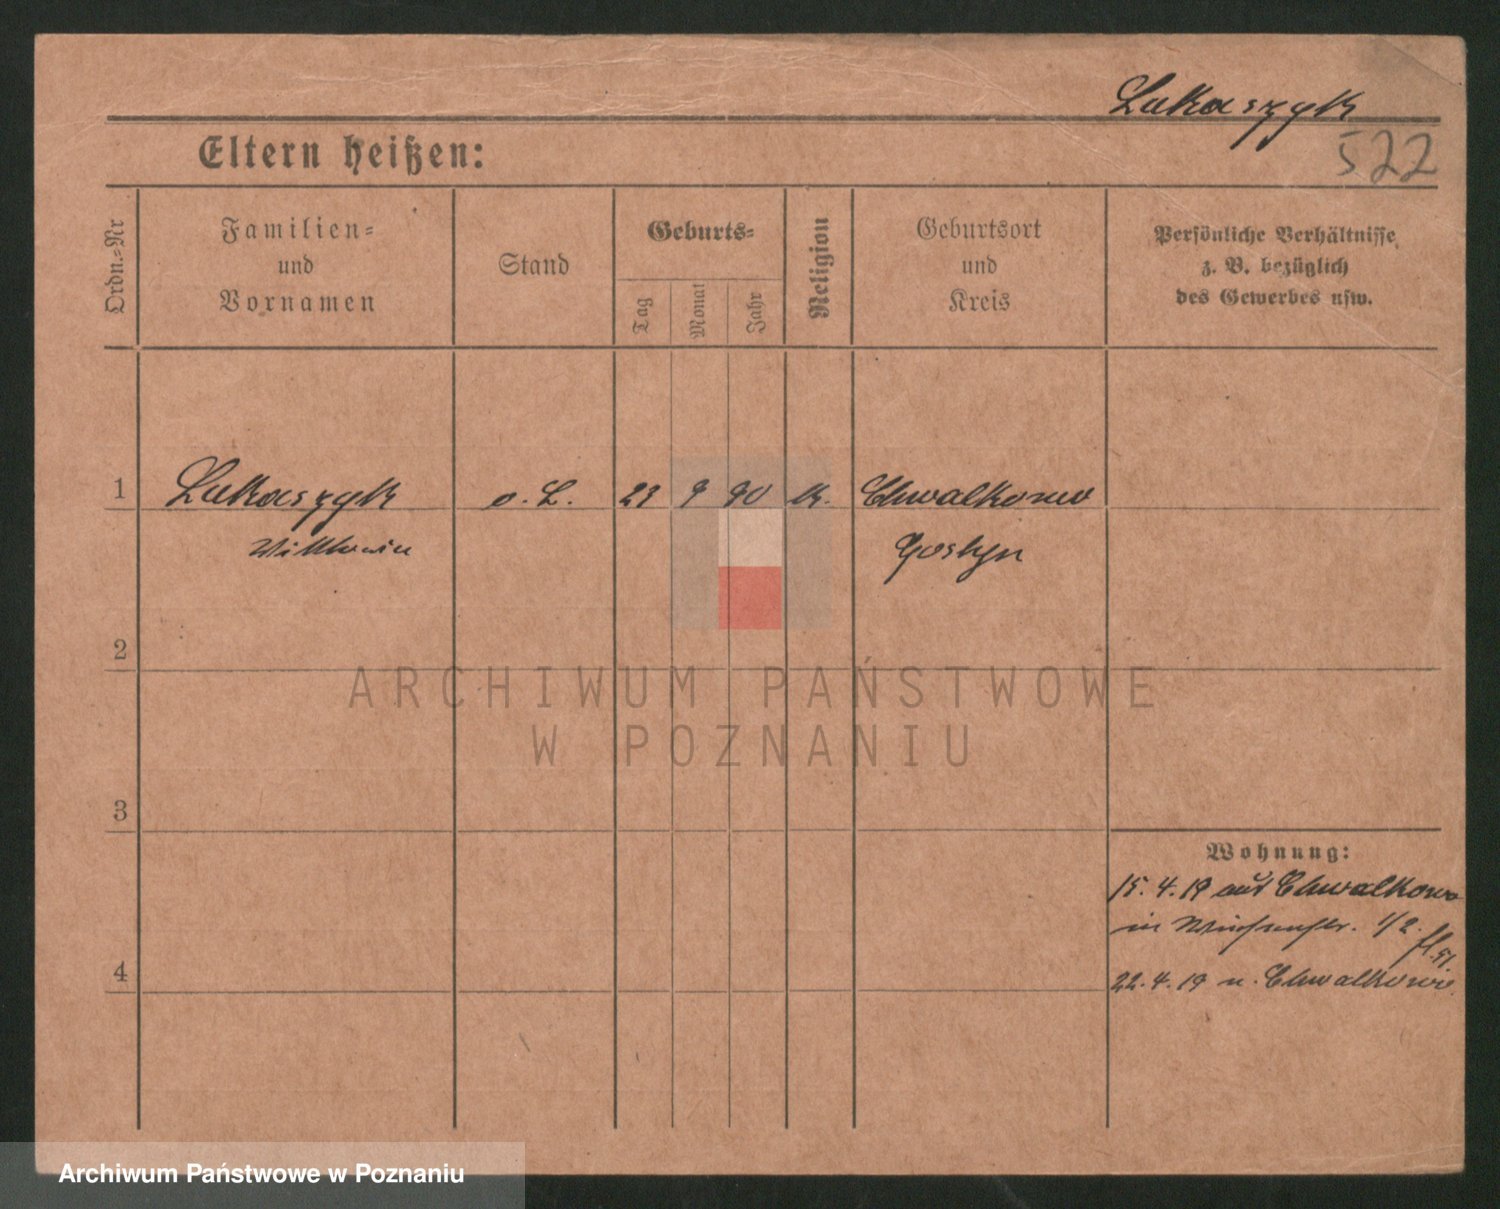 Lukaszyk
522
Eltern heißen:
Ordn.-Nr
Familien-
und
Vornamen
Stand
Geburts-
Tag
Monat
Jahr
Religion
Geburtsort
und
Kreis
Persönliche Verhältnisse
z. B. bezüglich
des Gewerbes usw.
1 Lukaszyk o. L. 23 9 90 K. Chwalkowo
Gostyn
2
ARCHIWUM PAŃSTWOWE
W POZNANIU
3
Wohnung:
15.4.19 aus Chwalkowo
in 1/2.
4
22.4.19 n. Chwalkowo
Archiwum Państwowe w Poznaniu